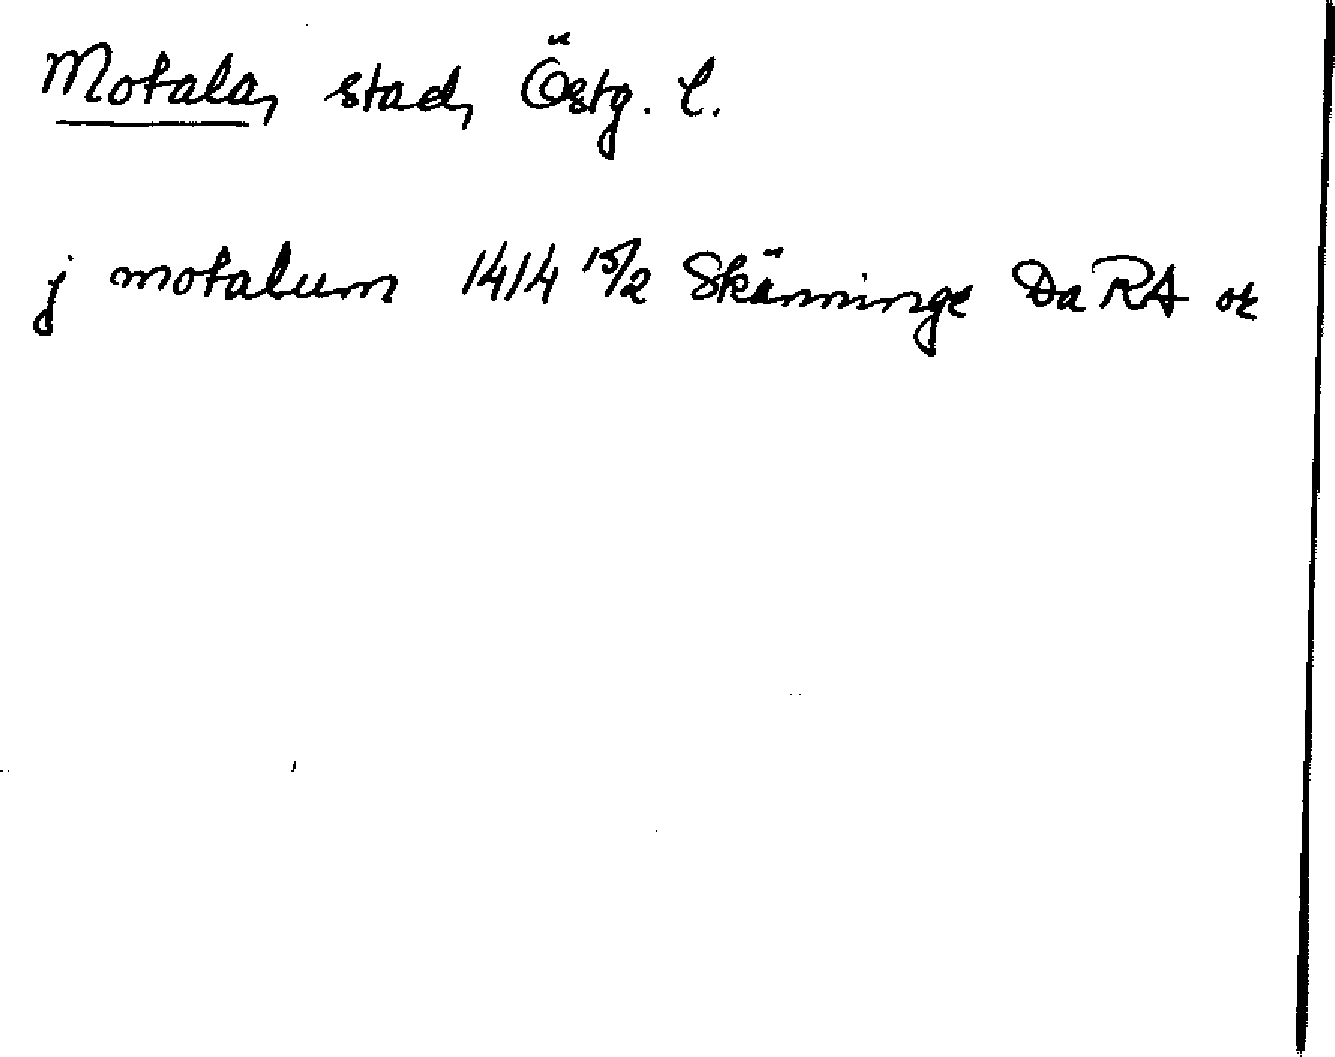 Motala, stad, Östg. l.
j motalum 1414 15/2 Skänninge Da RA or